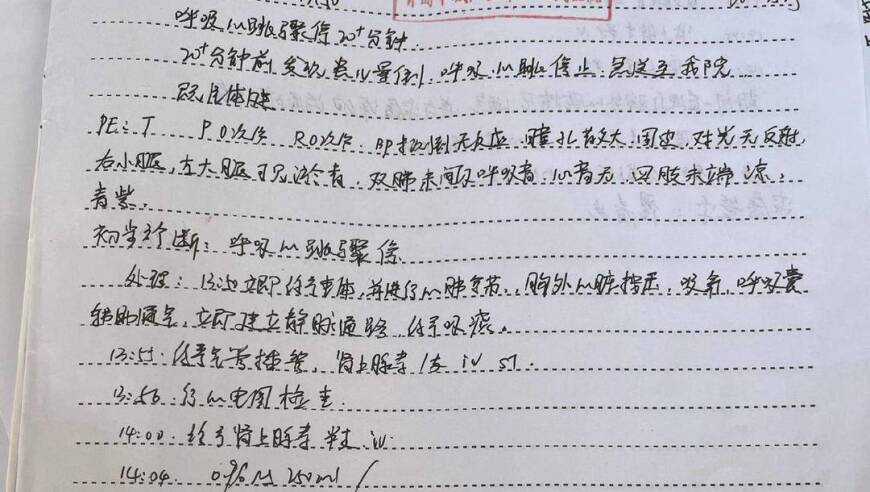 呼吸心跳骤停20+分钟
20+分钟前发现患儿晕倒,呼吸心跳停止,急送至我院
既往体健
PE: T P0次/分 R0次/分 BP测不到 无反应,瞳孔散大,固定,对光无反射,
右小腿,左大腿可见淤青,双肺未闻及呼吸音,心音无,四肢末端凉,
青紫。
初步诊断:呼吸心跳骤停
处理:13:50立即 并进行心肺复苏,胸外心脏按压,吸氧,呼吸囊
辅助通气,立即建立静脉通路 予吸痰。
13:55:予气管插管,肾上腺素1支 iv st.
13:56:行心电图检查.
14:00:给予肾上腺素 iv.
14:04. 0.9% NS 250ml /